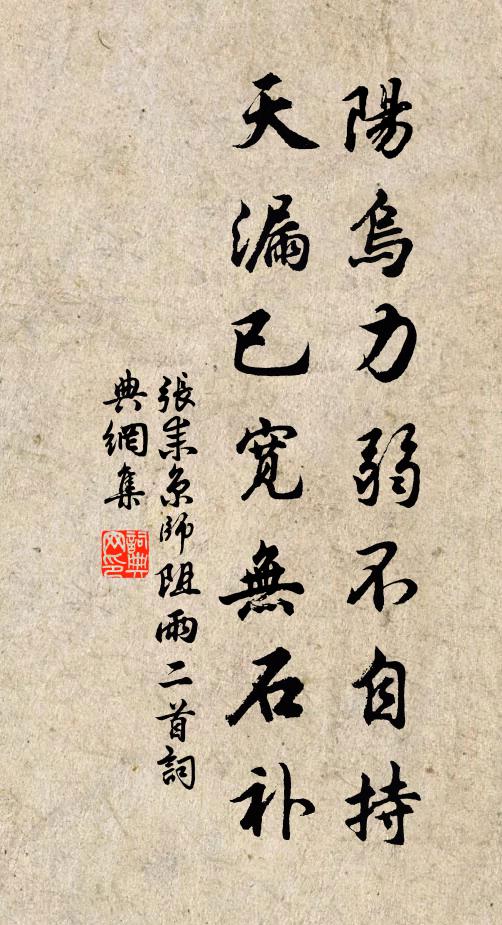 陽烏力弱不自持
天漏已寬無石补
張耒京師阻雨二首詞
典網集
詞典
网印